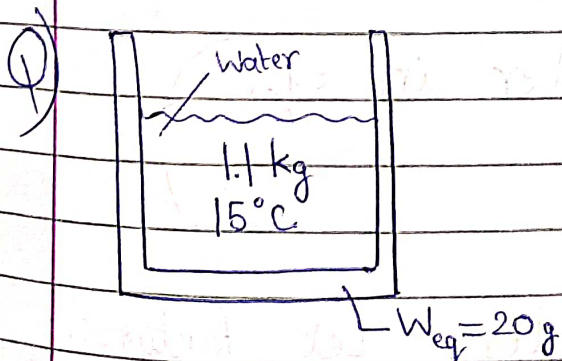 Q)
Water
1.1 kg
15°C
W_eq = 20 g